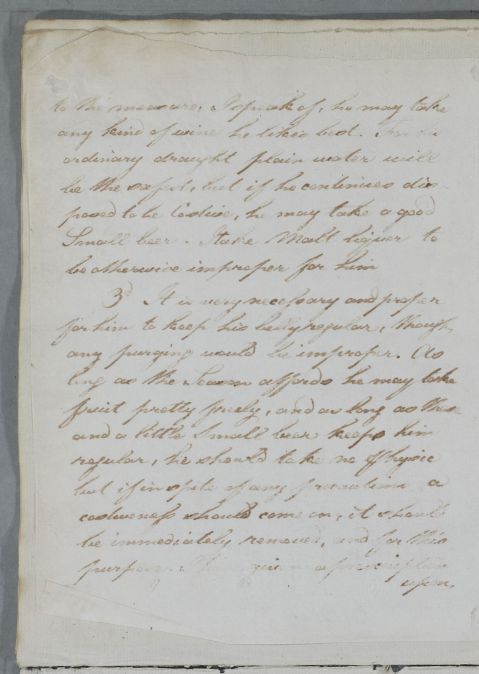 to the measure, I speak of, he may take
any kind of wine he likes best. For an
ordinary draught plain water will
be the safest, but if he continues dis-
posed to be Costive, he may take a good
Small beer. I take Malt liquor to
be otherwise improper for him
3d It is very necessary and proper
for him to keep his body regular, though
any purging would be improper. As
long as the Season affords he may take
fruit pretty freely, and as long as this
and a little Small beer keeps him
regular, he should take no Physic
but if in spite of any precautions a
costiveness should come on, it should
be immediately removed, and for this
purpose. I have given a prescription
upon